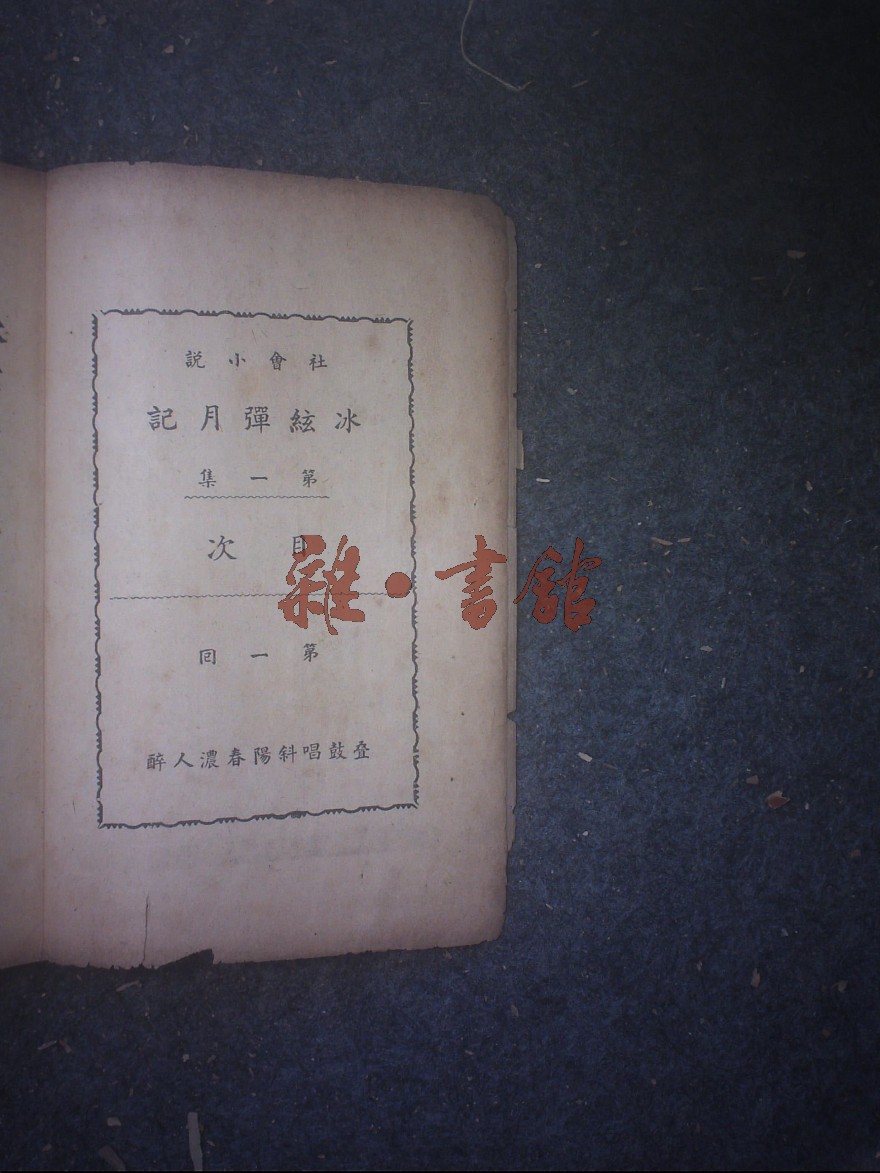 社會小説
冰絃彈月記
第一集
目次
雜·書館
第一回
叠鼓唱斜陽春濃人醉